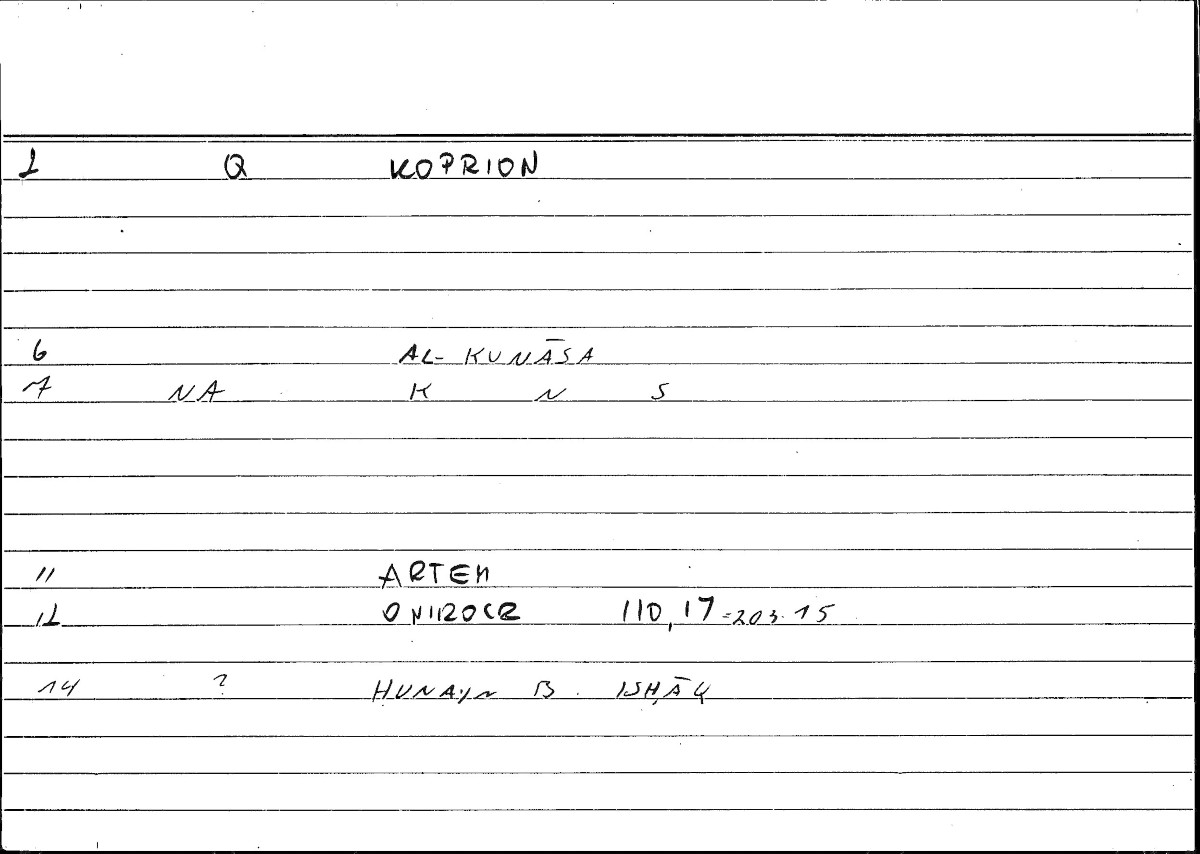 1 Q KOPRION
6 AL- KUNĀSA
7 NA K N S
11 ARTEM
12 ONIROCR 110,17 =203.15
14 ? ḤUNAYN B. ISḤĀQ